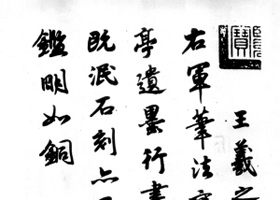 寶
王羲之
右軍筆法
亭遺墨行書
既泯石刻亦
鑑明如銅